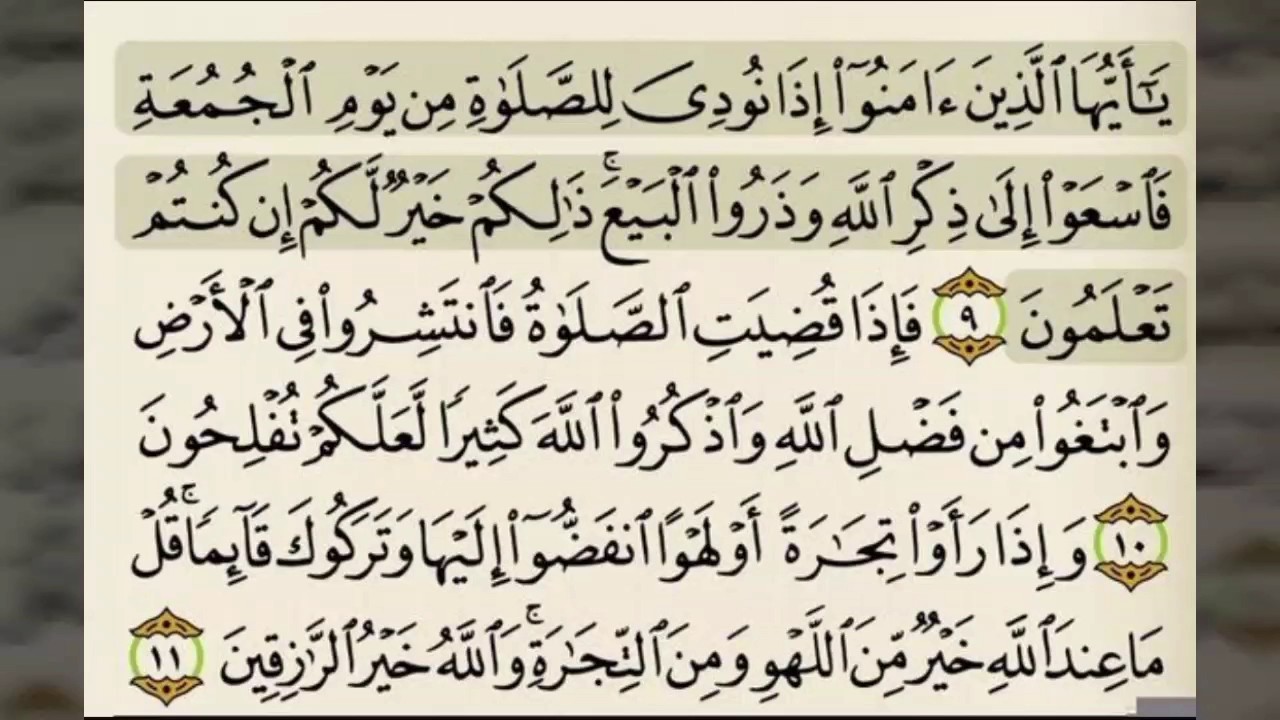 يَٰٓأَيُّهَا ٱلَّذِينَ ءَامَنُوٓا۟ إِذَا نُودِىَ لِلصَّلَوٰةِ مِن يَوْمِ ٱلْجُمُعَةِ
فَٱسْعَوْا۟ إِلَىٰ ذِكْرِ ٱللَّهِ وَذَرُوا۟ ٱلْبَيْعَ ۚ ذَٰلِكُمْ خَيْرٌ لَّكُمْ إِن كُنتُمْ
تَعْلَمُونَ ٩ فَإِذَا قُضِيَتِ ٱلصَّلَوٰةُ فَٱنتَشِرُوا۟ فِى ٱلْأَرْضِ
وَٱبْتَغُوا۟ مِن فَضْلِ ٱللَّهِ وَٱذْكُرُوا۟ ٱللَّهَ كَثِيرًا لَّعَلَّكُمْ تُفْلِحُونَ
١٠ وَإِذَا رَأَوْا۟ تِجَٰرَةً أَوْ لَهْوًا ٱنفَضُّوٓا۟ إِلَيْهَا وَتَرَكُوكَ قَآئِمًا ۚ قُلْ
مَا عِندَ ٱللَّهِ خَيْرٌ مِّنَ ٱللَّهْوِ وَمِنَ ٱلتِّجَٰرَةِ ۚ وَٱللَّهُ خَيْرُ ٱلرَّٰزِقِينَ ١١